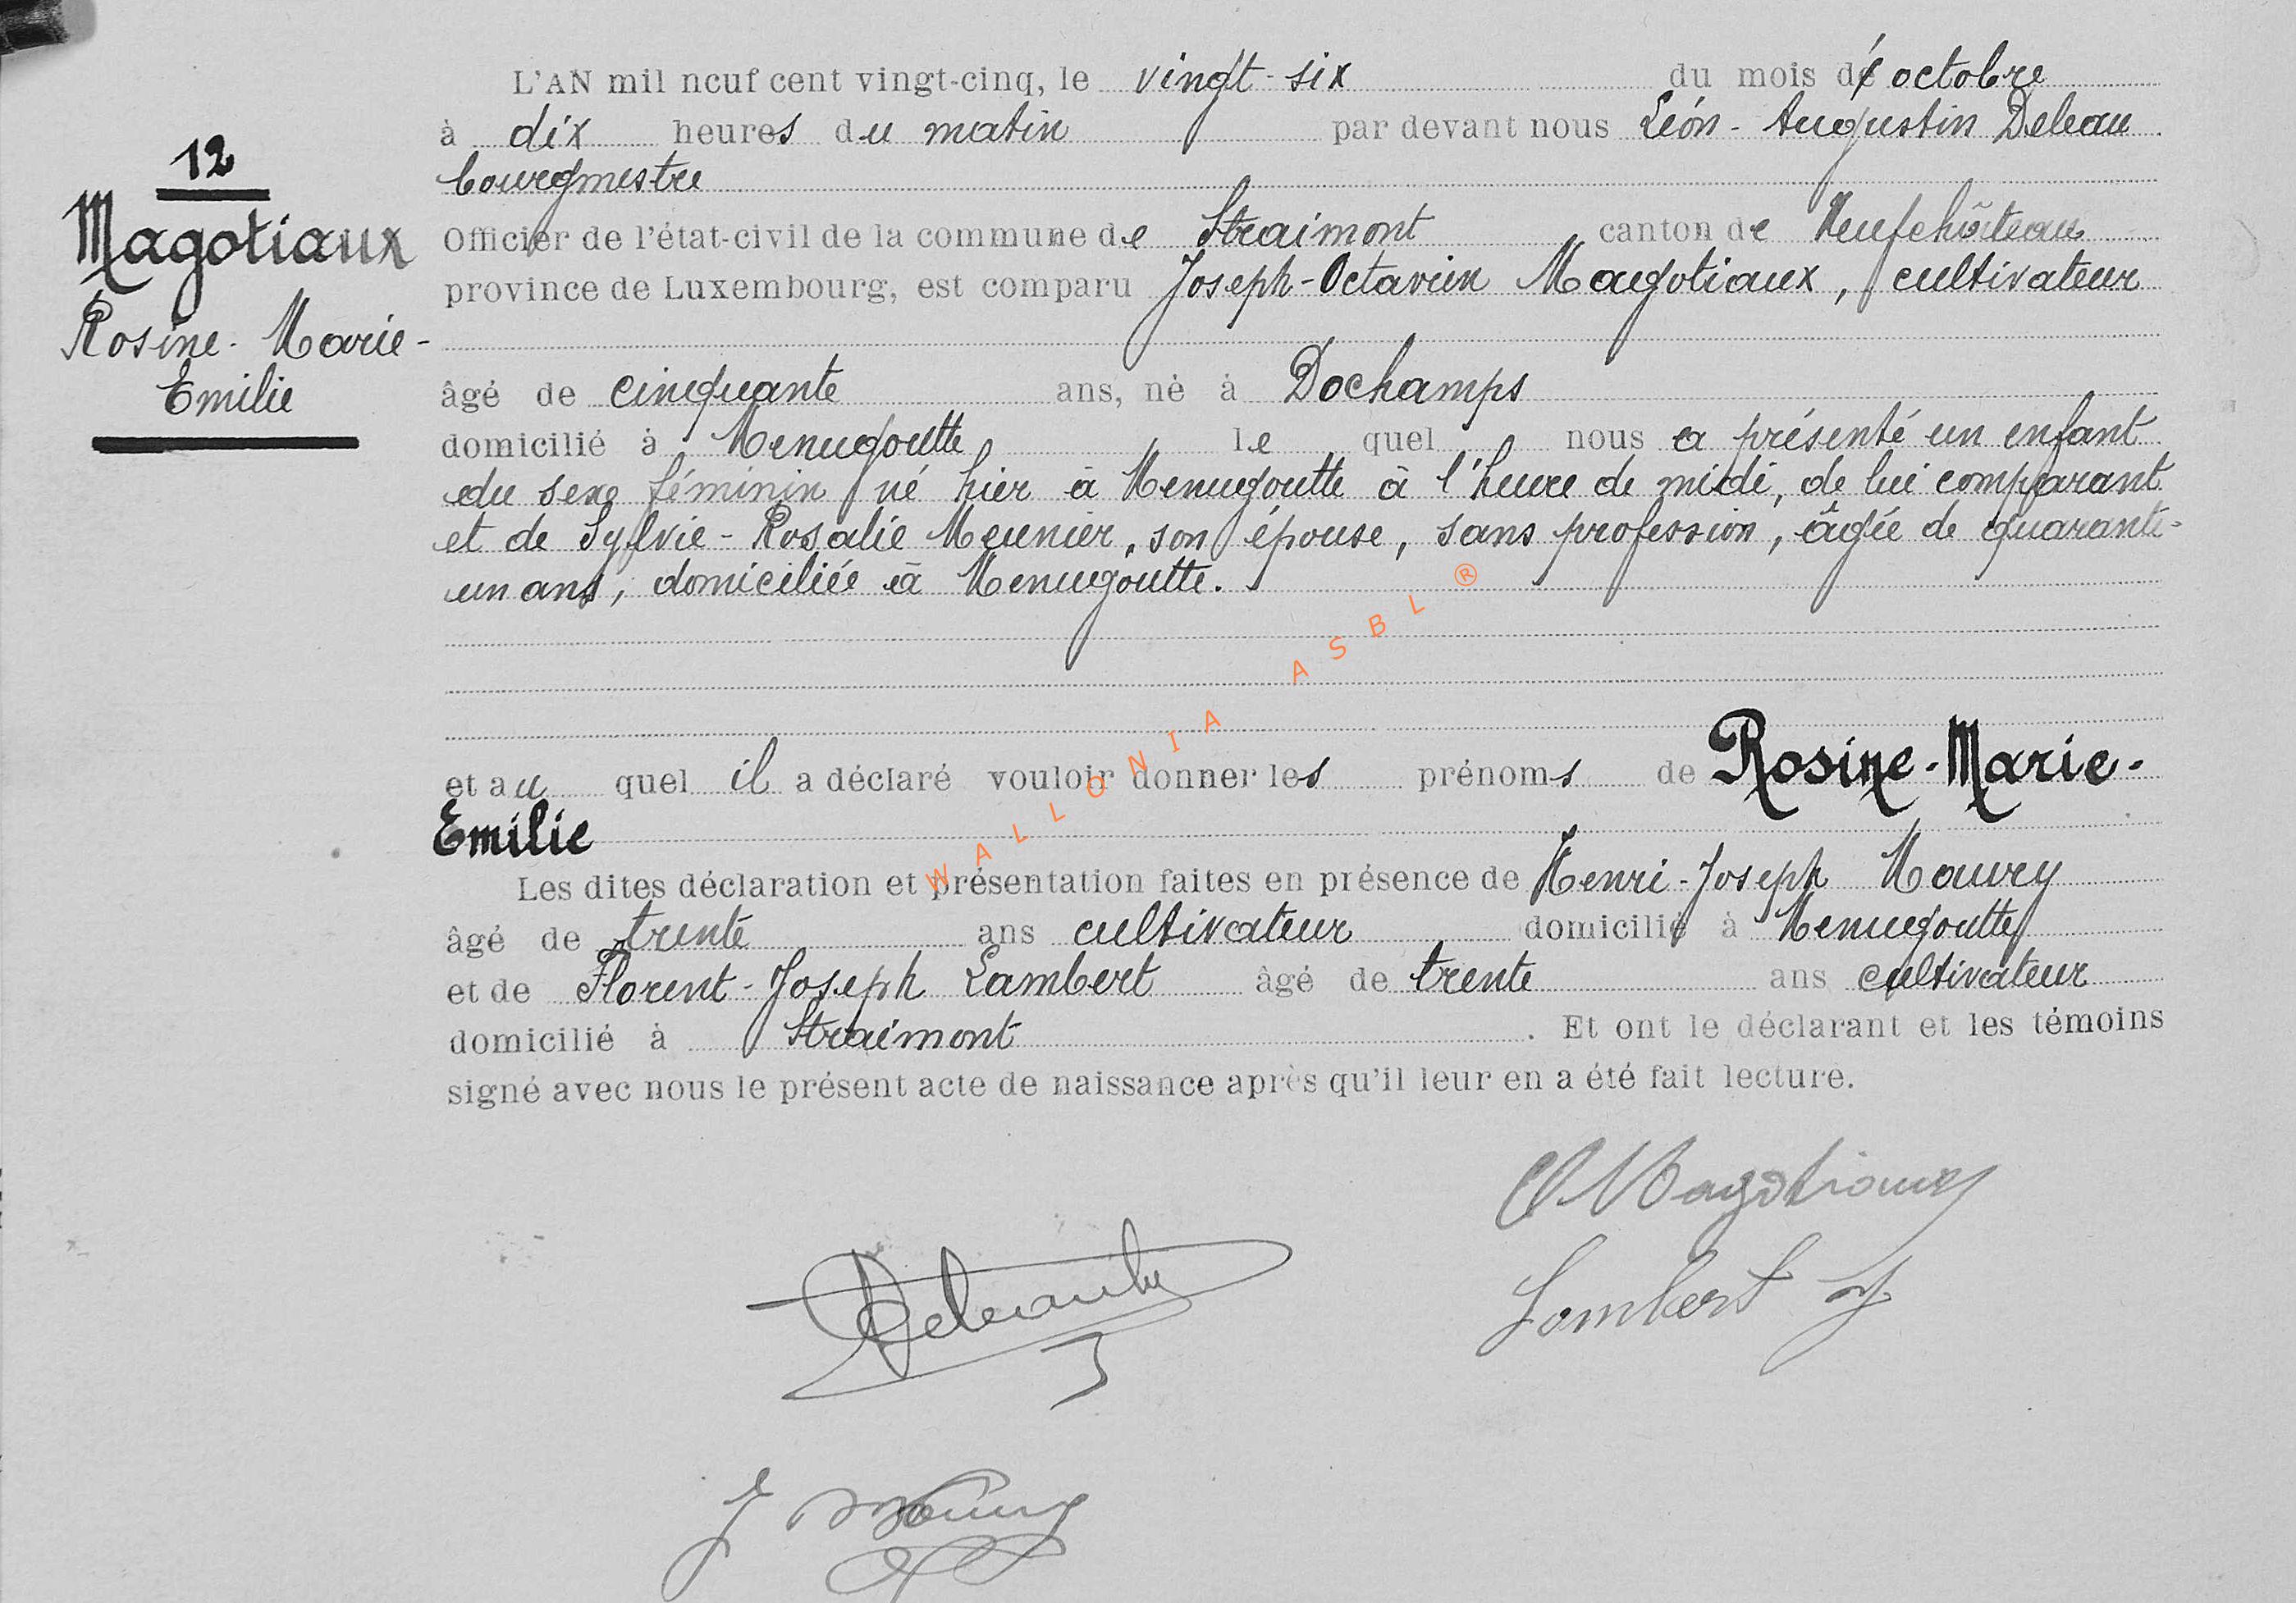 L'AN mil neuf cent vingt-cinq, le vingt-six du mois d'octobre
à dix heures du matin par devant nous Léon-Augustin Deleau
bourgmestre
Officier de l'état-civil de la commune de Straimont canton de Neufchâteau
province de Luxembourg, est comparu Joseph-Octavien Magotiaux, cultivateur
12
Magotiaux
Rosine-Marie-
Emilie
âgé de cinquante ans, né à Dochamps
domicilié à Menugoutte le quel nous a présenté un enfant
du sexe féminin né hier à Menugoutte à l'heure de midi, de lui comparant
et de Sylvie-Rosalie Meunier, son épouse, sans profession, âgée de quarante-
un ans, domiciliée à Menugoutte.
WALLONIA ASBL ®
et au quel il a déclaré vouloir donner les prénoms de Rosine-Marie-
Emilie
Les dites déclaration et présentation faites en présence de Henri-Joseph Maury
âgé de trente ans cultivateur domicilié à Menugoutte
et de Florent-Joseph Lambert âgé de trente ans cultivateur
domicilié à Straimont. Et ont le déclarant et les témoins
signé avec nous le présent acte de naissance après qu'il leur en a été fait lecture.
O Magotiaux
Lambert J